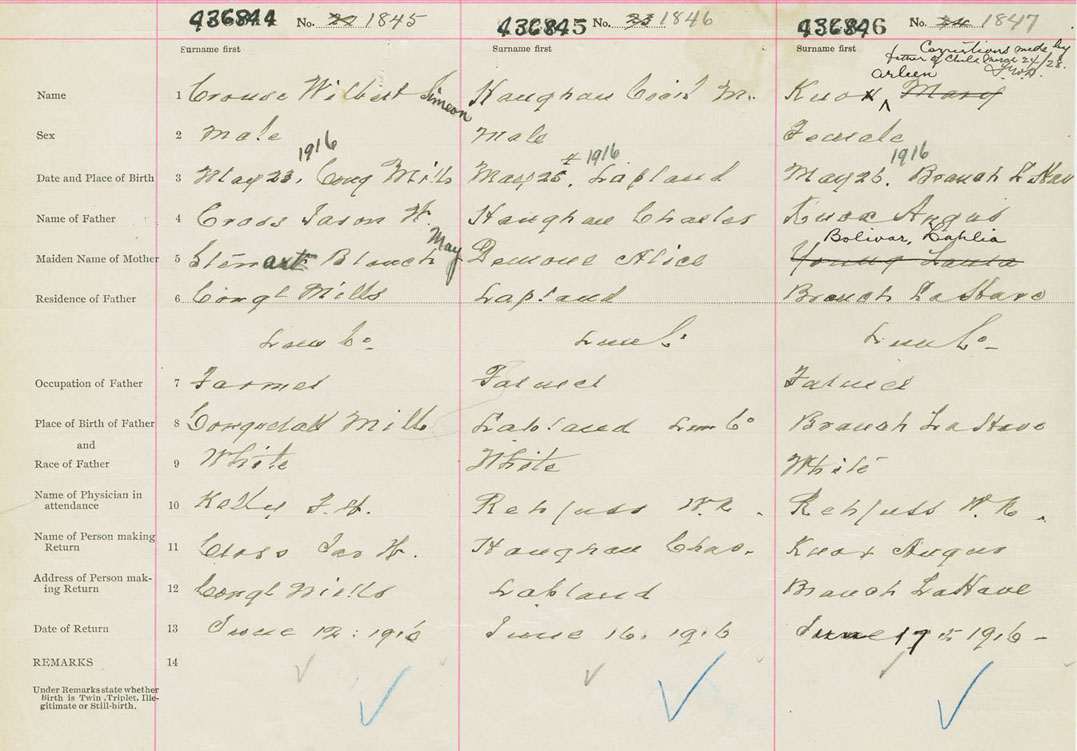 436844 No. 1845 436845 No. 23 1846 436846 No. 24 1847
Surname first Surname first Surname first Corrections made by
father of child March 24/28.
Arleen
Name 1 Crouse Wilbert Simeon Haughan Cecil M. Knox Mary
Sex 2 Male Male Female
1916 1916 1916
Date and Place of Birth 3 May 23, Conq Mills May 25, Lapland May 26, Branch LaHave
Name of Father 4 Cross Jason W. Haughan Charles Knox Angus
May Bolivar, Dahlia
Maiden Name of Mother 5 Stewart Blanch Demone Alice Young Laura
Residence of Father 6 Conqt Mills Lapland Branch LaHave
Lun Co Lun Co Lun Co
Occupation of Father 7 Farmer Farmer Farmer
Place of Birth of Father 8 Conquedall Mills Lapland Lun Co Branch LaHave
and
Race of Father 9 White White White
Name of Physician in
attendance 10 Rehfuss W. N. Rehfuss W. N.
Name of Person making
Return 11 Cross Jas W. Haughan Chas. Knox Angus
Address of Person mak-
ing Return 12 Conqt Mills Lapland Branch LaHave
Date of Return 13 June 12. 1916 June 16. 1916 June 17th 1916 -
REMARKS 14
Under Remarks state whether
Birth is Twin, Triplet, Ille-
gitimate or Still-birth.